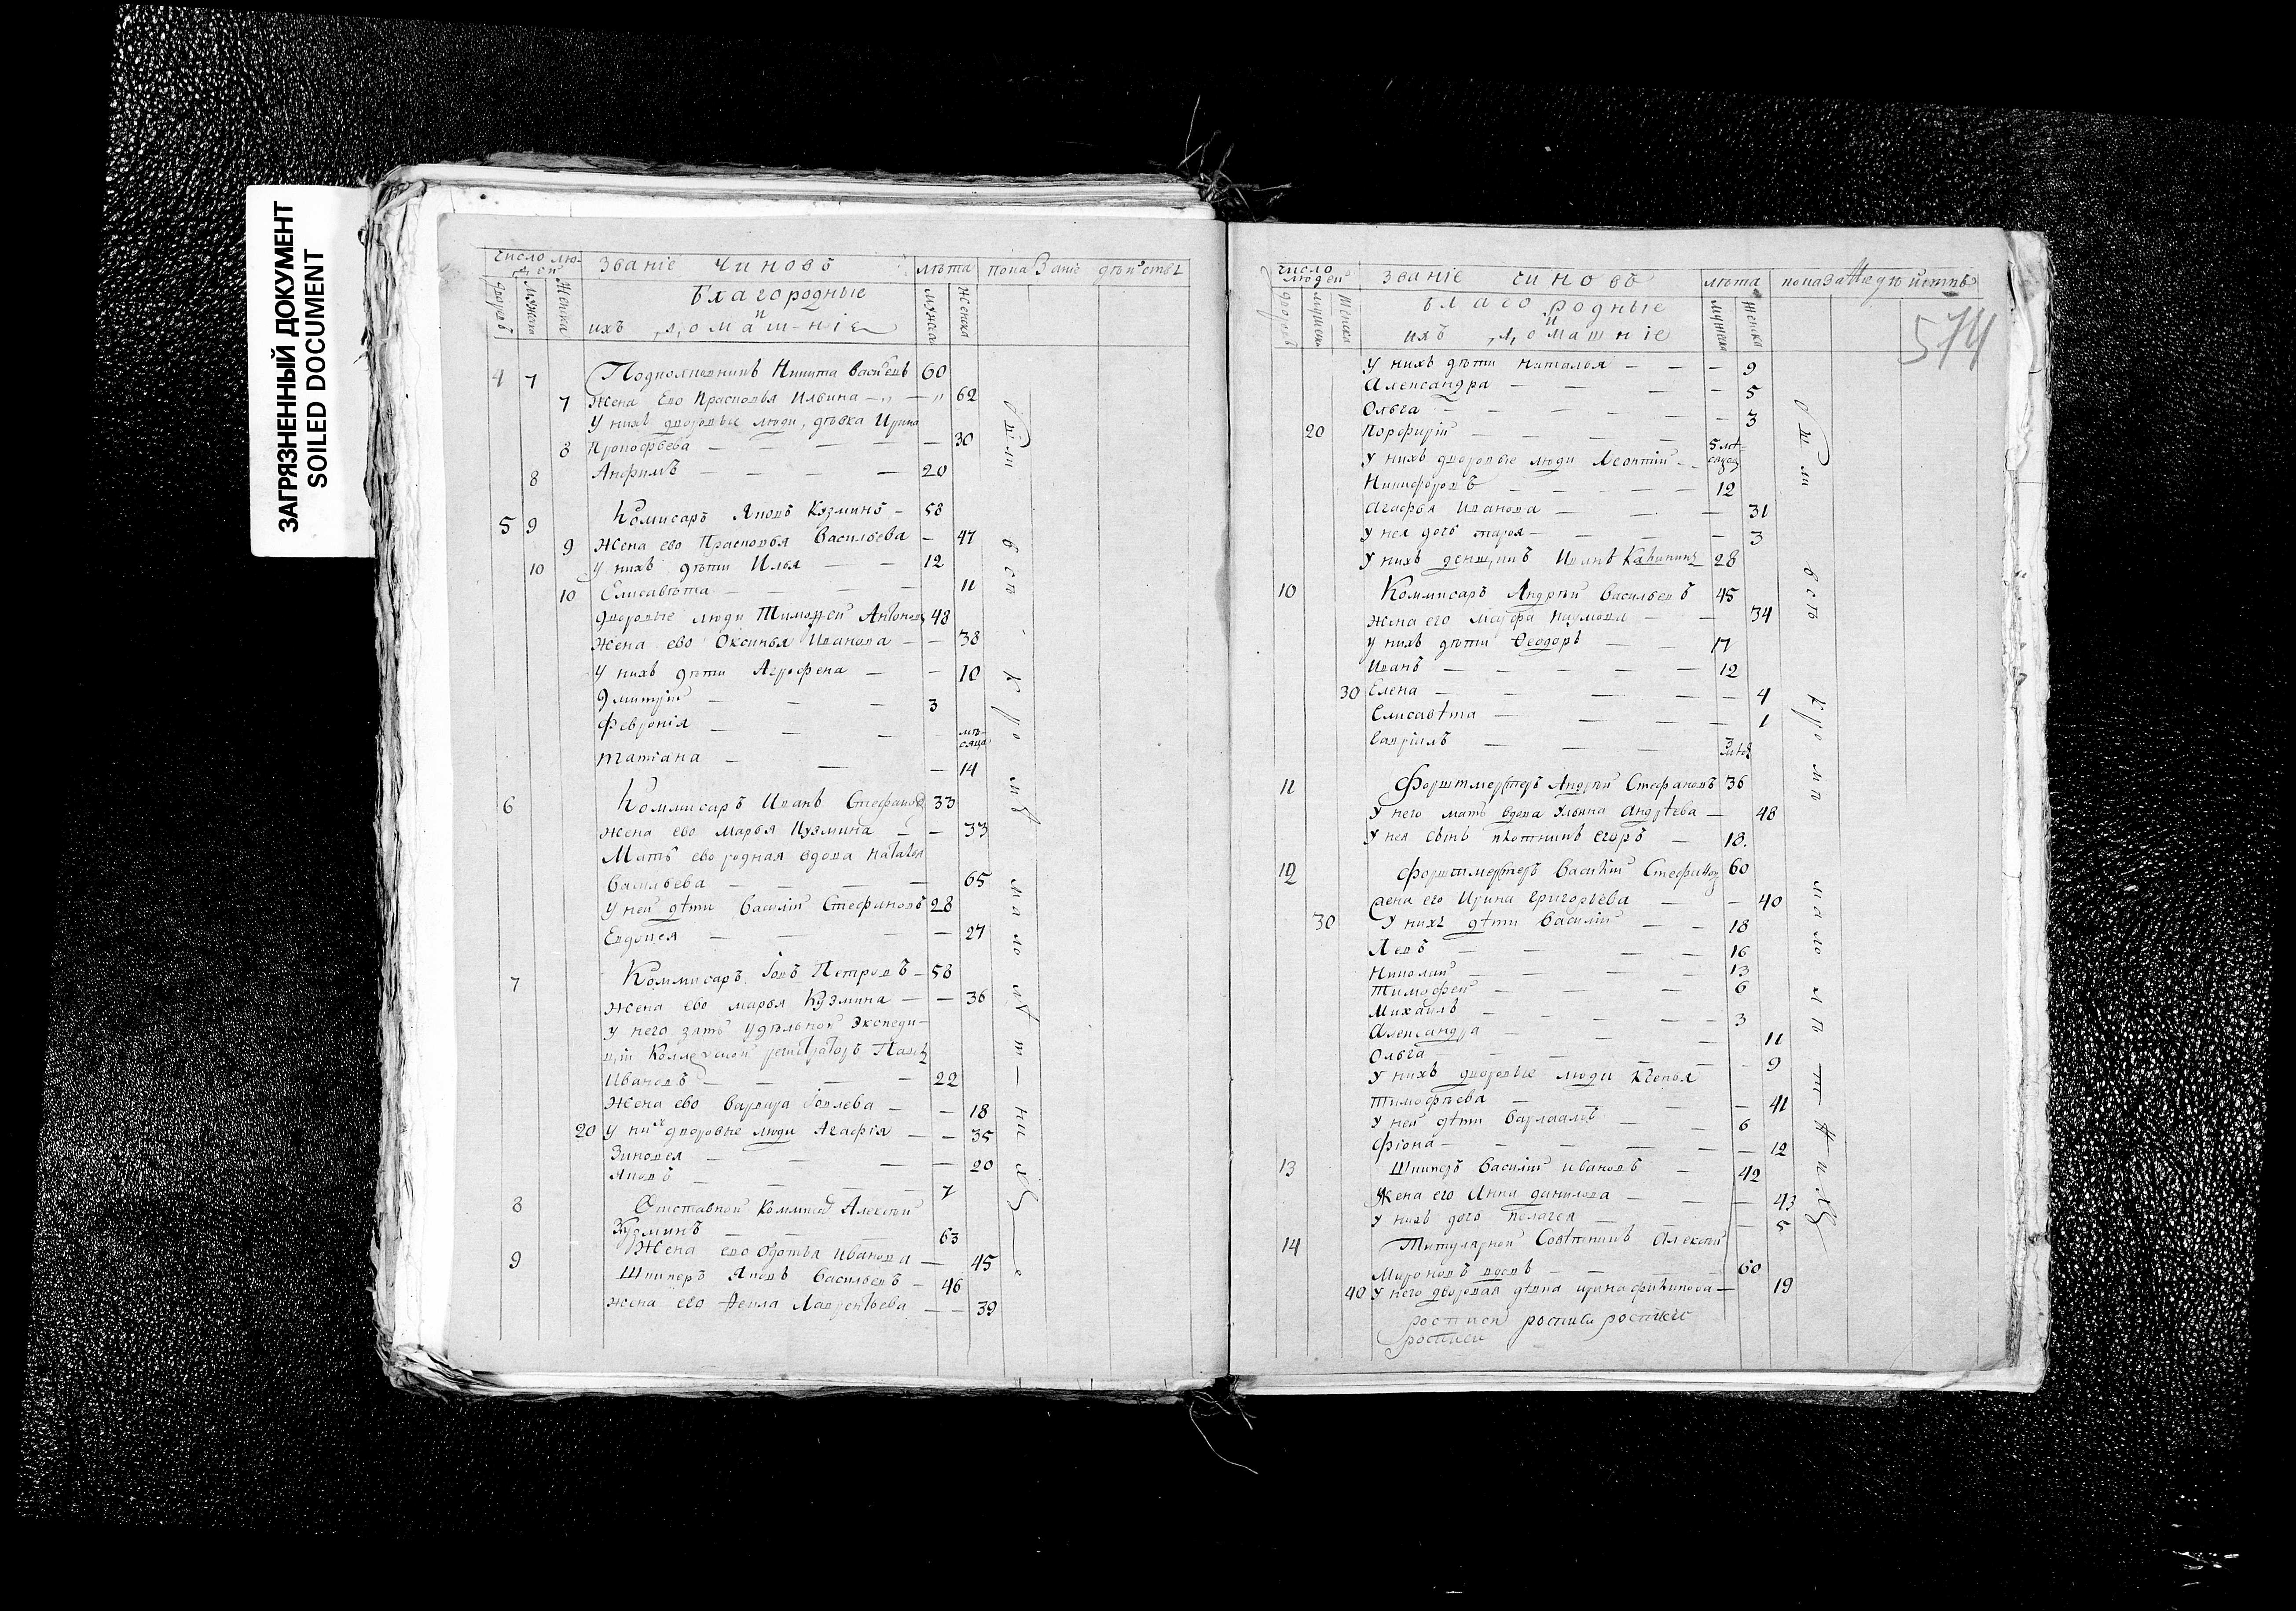 ЗАГРЯЗНЕННЫЙ ДОКУМЕНТ
SOILED DOCUMENT
число лю-
дей
званіе чиновъ
лѣта
показаніе дѣйствъ
дворовъ
мужска
женска
благородные
и
ихъ домашніе
мужска
женска
4 7 Подполковникъ Никита Васильевъ 60
7 Жена Ево Прасковья Ильина — „ — „ 62
У нихъ дворовые люди, дѣвка Ирина
8 Прокофьева — — — — — 30
8 Анфимъ — — — 20
5 9 Комисаръ Яковъ Кузминъ — 58
9 Жена ево Прасковья Васильева — 47
10 у нихъ дѣти Илья — — 12
10 Елисавѣта — — — — 11
дворовые люди Тимофей Антоновъ 48
жена ево Оксинья Иванова — — 38
у нихъ дѣти Агрофена — — 10
Дмитрій — — — 3
Февронія — — — мѣ-
сяца
татіана — — — 14
6 Коммисаръ Иванъ Стефановъ 33
жена ево Марья Кузмина — — 33
Мать ево родная вдова Наталья
Васильева — — — — 65
у ней дѣти Василій Стефановъ 28
Евдокея — — — — 27
7 Коммисаръ Іовъ Петровъ — 58
жена ево марья Кузмина — — 36
у него зять удѣльной Экспеди-
ціи Коллежской регистраторъ Павелъ
Ивановъ — — — 22
жена ево Варвара Іовлева — — 18
20 у нихъ дворовые люди Агафія — — 35
Зиновея — — — 20
Яковъ — — — — 7
8 Отставной коммисаръ Алексей
Кузминъ — — — 63
Жена ево Федотья Иванова — 45
9 Шкиперъ Яковъ Васильевъ — 46
жена его Фекла Лаврентьева — — 39
были
въ сп.
кромѣ
малолѣтнихъ
число
людей
званіе чиновъ
лѣта
показаніе дѣйствъ
дворовъ
мужска
женска
благородные
и
ихъ домашніе
мужска
женска
574
У нихъ дѣти Наталья — — — 9
Александра — — — 5
Ольга — — — — — 3
20 Порфирій — — — 5 мѣ-
сяцов
У нихъ дворовые люди Леонтій — —
Никифоровъ — — — — 12
Агафья Иванова — — — 31
у нея дочь марья — — — — 3
У нихъ денщикъ Иванъ Калининъ 28
10 Коммисаръ Андрѣй Васильевъ 45
жена его Марфа Наумова — — 34
у нихъ дѣти Феодоръ — — 17
Иванъ — — — — — 12
30 Елена — — — — — 4
Елисавѣта — — — — 1
Гавріилъ — — — 3
мѣся
11 Форштмейстеръ Андрѣй Стефановъ 36
У него мать вдова Ульяна Андрѣева — 48
У нея сынъ плотникъ Егоръ — 18.
12 Форштмейстеръ Василій Стефановъ 60
жена его Ирина Григорьева — — 40
30 У нихъ дѣти Василій — — 18
Левъ — — — — 16
Николай — — — — 13
Тимофей — — — — 6
Михаилъ — — — — 3
Александра — — — — 11
Ольга — — — — 9
У нихъ дворовые люди Ксенья
Тимофѣева — — — 41
У ней дѣти Варлаамъ — — 6
Фіона — — — — — 12
13 Шкиперъ Василій Ивановъ — 42
Жена его Анна данилова — — — 43
у нихъ дочь Пелагея — — 5
14 Титулярной Совѣтникъ Алексѣй
Мироновъ вдовъ — — — 60
40 У него дворовая дѣвка ирина филипова — 19
росписи росписи росписи
росписи
были
въ сп.
кромѣ
малолѣтнихъ